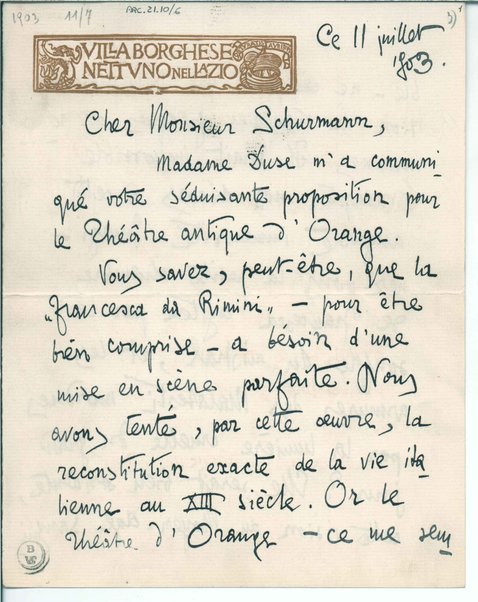 1903 11/7
ARC.21.10/6
3) 1
VILLA BORGHESE
NETTVNO NEL LAZIO
Ce 11 juillet
1903.
Cher Monsieur Schurmann,
Madame Duse m'a communi
qué votre séduisante proposition pour
le Théâtre antique d'Orange.
Vous savez, peut-être, que la
"francesca da Rimini" – pour être
bien comprise – a bésoin d'une
mise en scène parfaite. Nous
avons tenté, par cette œuvre, la
reconstitution exacte de la vie ita-
lienne au XIII siècle. Or le
théâtre d'Orange – ce me sem
B